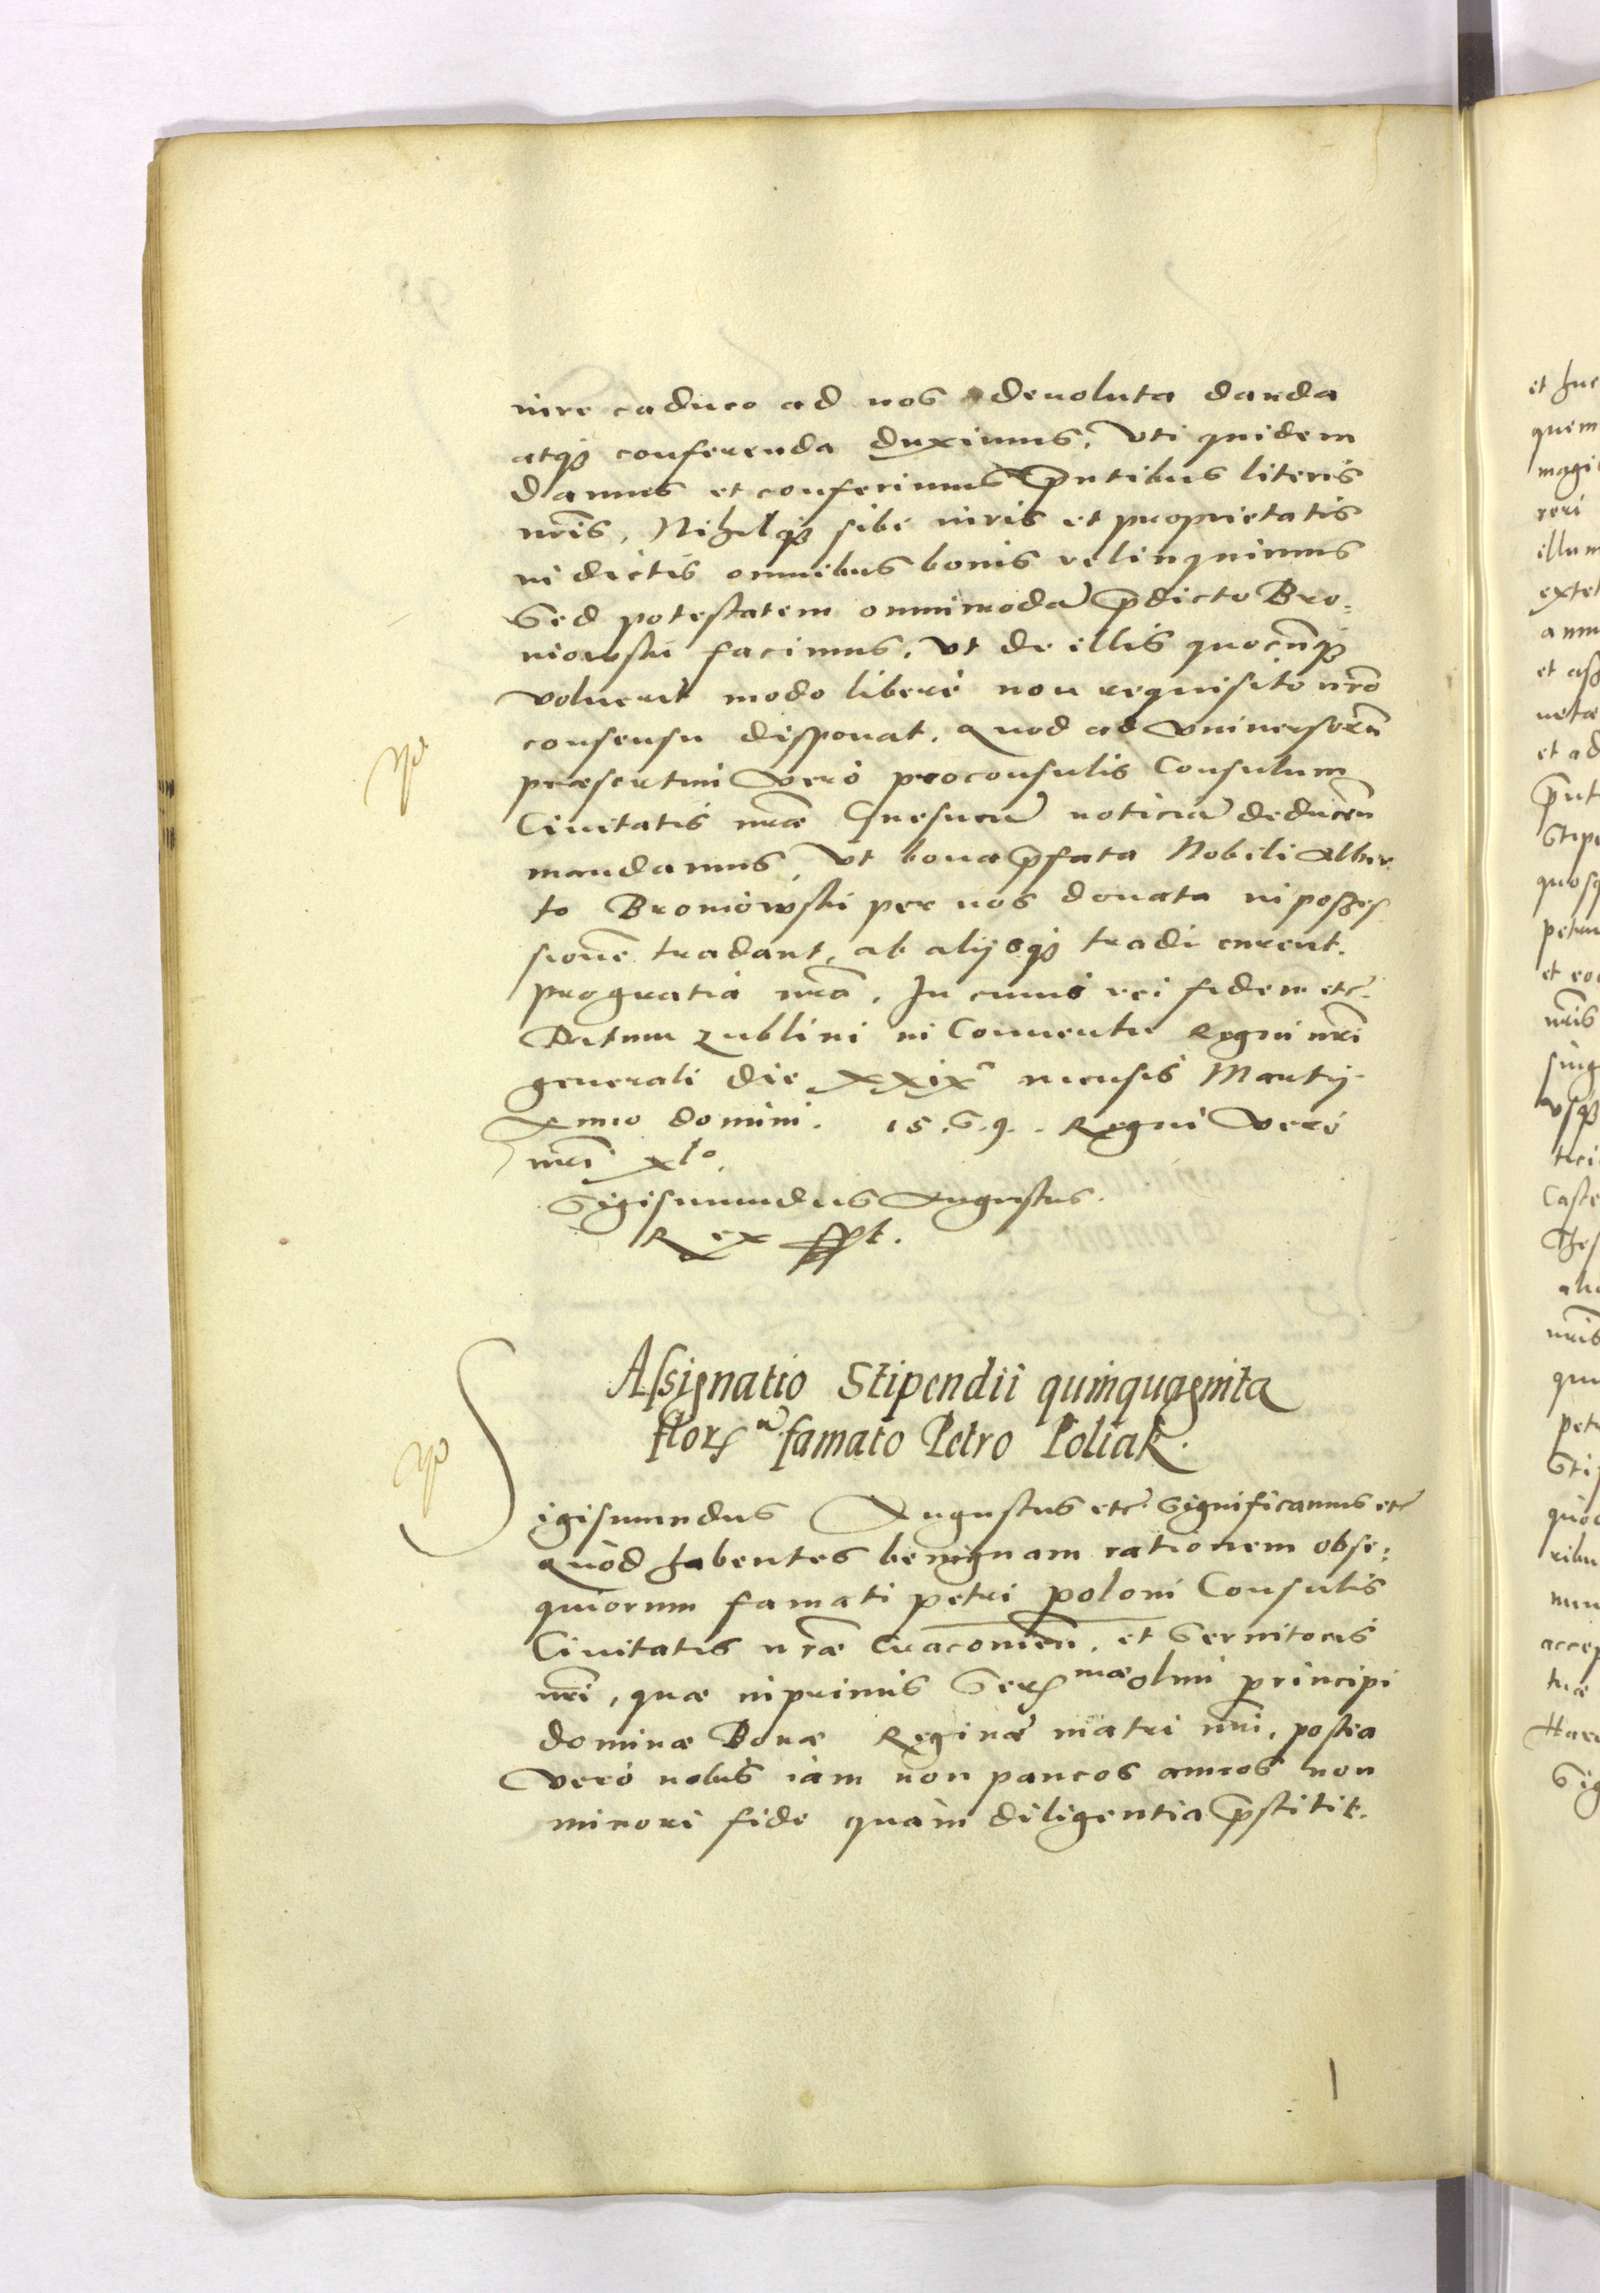 iure caduco ad nos deuoluta danda
atq₃ conferenda duximus, Vti quidem
damus et conferimus p̄ntibus literis
nr̄is, Nihilq₃ sibi iuris et proprietatis
in dictis omnibus bonis relinquimus
Sed potestatem omnimodā p̄dicto Bro-
niowski facimus, vt de illis quocūq₃
voluerit modo liberè non requisito nr̄o
consensu disponat. Quod ad vniuersorū
præsertim verò proconsulis Consulum
Ciuitatis nr̄æ Gnesnen̄ noticiā deducen̄
mandamus, Vt bona p̄fata Nobili Alber-
to Broniowski per nos donata in posses-
sionē tradant, ab alijsq₃ tradi curent.
pro gratia nr̄a. In cuius rei fidem etc̄
Datum Lublini in Conuentu Regni nr̄i
generali die xxixª mensis Martij
Anno domini. 15.6.9. Regni verò
nr̄i xlº.
Sigismundus Augustus.
Rex sspt.
Assignatio Stipendii quinquaginta
flor. famato Petro Poliak.
Sigismundus Augustus etc̄ Significamus etc̄
Quòd habentes benignam rationem obse-
quiorum famati petri poloni Consulis
Ciuitatis nr̄æ Cracouien̄. et Seruitoris
nr̄i, quæ inprimis Ser mæ olim principi
dominæ Bonæ Reginæ matri nr̄i, postea
verò nobis iam non paucos annos non
minori fide quàm diligentia p̄stitit.